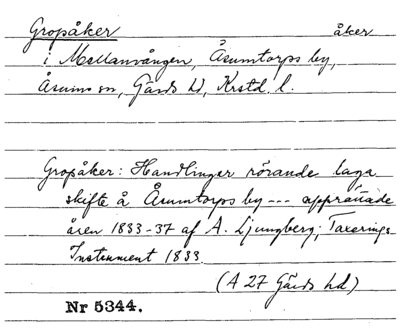 Gropåker åker
i Mellanvången, Åsumtorps by,
Åsums sn, Gärds hd, Krstd. l.
Gropåker: Handlingar rörande laga
skifte å Åsumtorps by --- upprättade
åren 1833-37 af A. Ljungberg; Taxerings
Instrument 1833.
(A 27 Gärds hd)
Nr 5344.